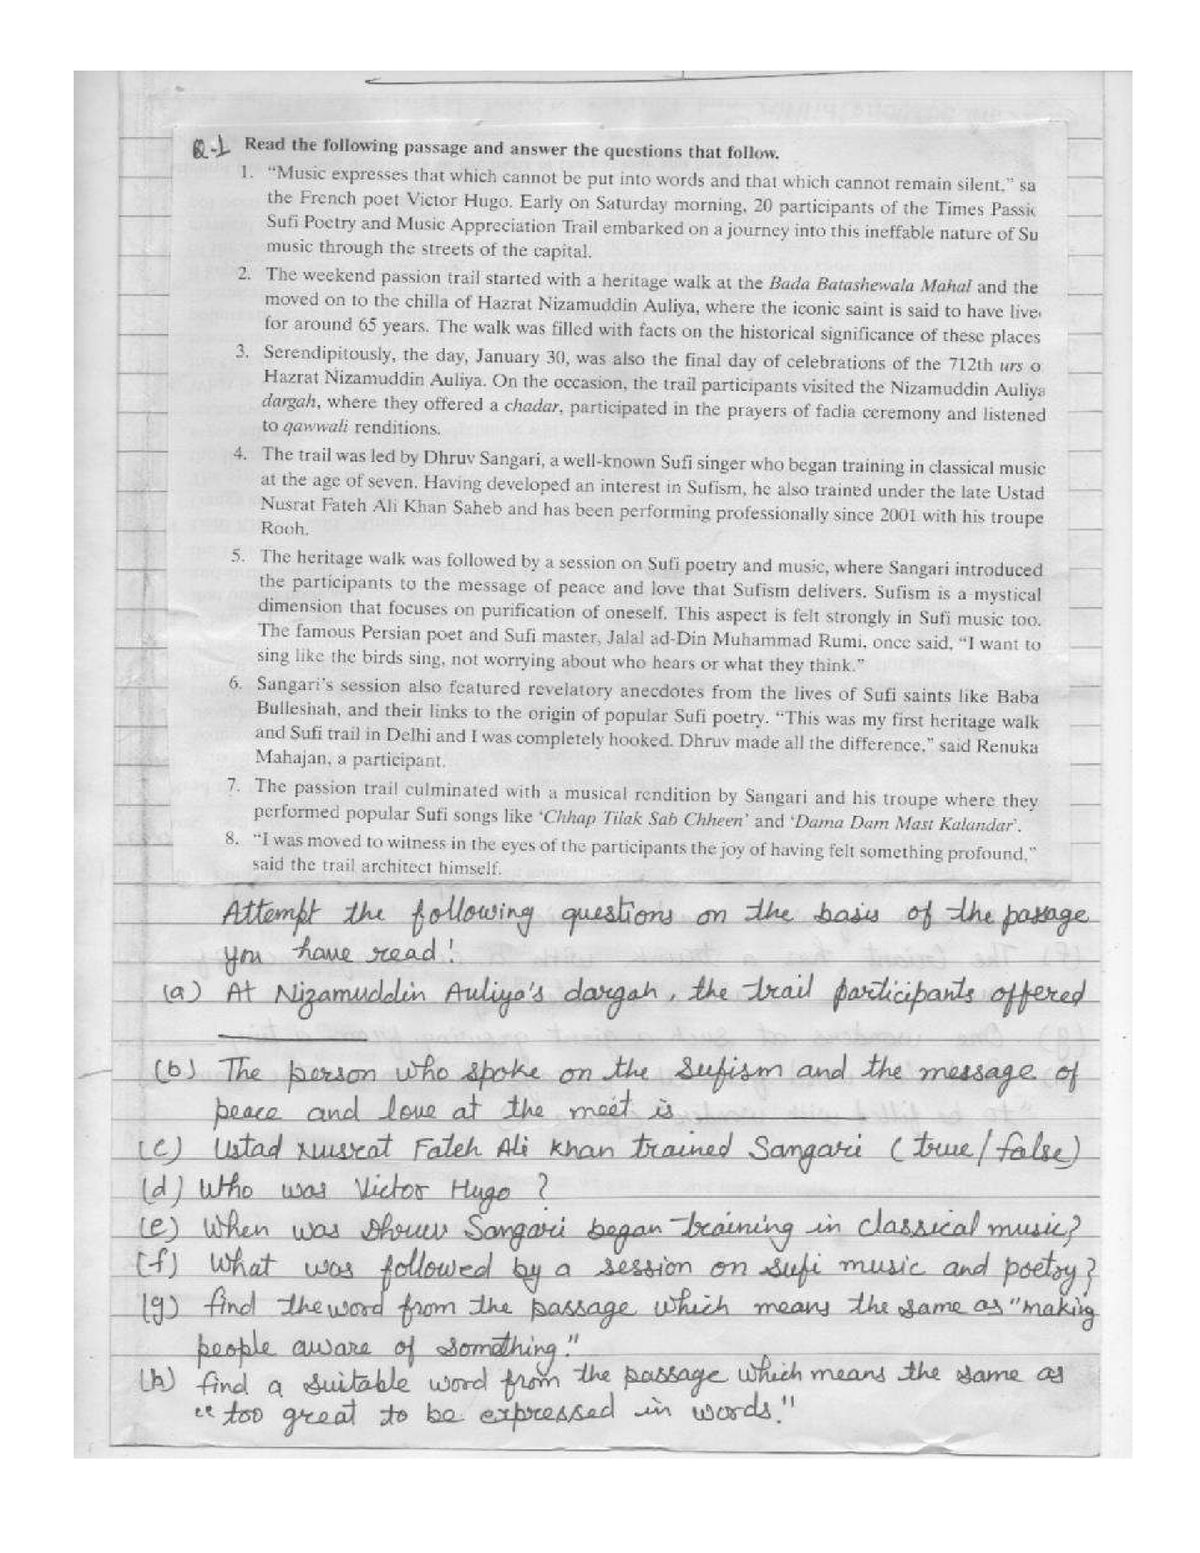 Q-1 Read the following passage and answer the questions that follow.
1. "Music expresses that which cannot be put into words and that which cannot remain silent," sa
the French poet Victor Hugo. Early on Saturday morning, 20 participants of the Times Passic
Sufi Poetry and Music Appreciation Trail embarked on a journey into this ineffable nature of Su
music through the streets of the capital.
2. The weekend passion trail started with a heritage walk at the Bada Batashewala Mahal and the
moved on to the chilla of Hazrat Nizamuddin Auliya, where the iconic saint is said to have live
for around 65 years. The walk was filled with facts on the historical significance of these places
3. Serendipitously, the day, January 30, was also the final day of celebrations of the 712th urs o
Hazrat Nizamuddin Auliya. On the occasion, the trail participants visited the Nizamuddin Auliya
dargah, where they offered a chadar, participated in the prayers of fadia ceremony and listened
to qawwali renditions.
4. The trail was led by Dhruv Sangari, a well-known Sufi singer who began training in classical music
at the age of seven. Having developed an interest in Sufism, he also trained under the late Ustad
Nusrat Fateh Ali Khan Saheb and has been performing professionally since 2001 with his troupe
Rooh.
5. The heritage walk was followed by a session on Sufi poetry and music, where Sangari introduced
the participants to the message of peace and love that Sufism delivers. Sufism is a mystical
dimension that focuses on purification of oneself. This aspect is felt strongly in Sufi music too.
The famous Persian poet and Sufi master, Jalal ad-Din Muhammad Rumi, once said, "I want to
sing like the birds sing, not worrying about who hears or what they think."
6. Sangari's session also featured revelatory anecdotes from the lives of Sufi saints like Baba
Bulleshah, and their links to the origin of popular Sufi poetry. "This was my first heritage walk
and Sufi trail in Delhi and I was completely hooked. Dhruv made all the difference," said Renuka
Mahajan, a participant.
7. The passion trail culminated with a musical rendition by Sangari and his troupe where they
performed popular Sufi songs like 'Chhap Tilak Sab Chheen' and 'Dama Dam Mast Kalandar'.
8. "I was moved to witness in the eyes of the participants the joy of having felt something profound,"
said the trail architect himself.
Attempt the following questions on the basis of the passage
you have read!
(a) At Nizamuddin Auliya's dargah, the trail participants offered
__________
(b) The person who spoke on the Sufism and the message of
peace and love at the meet is __________
(c) Ustad Nusrat Fateh Ali Khan trained Sangari (true/false)
(d) Who was Victor Hugo ?
(e) When was Dhruv Sangari began training in classical music?
(f) What was followed by a session on Sufi music and poetry?
(g) find the word from the passage which means the same as "making
people aware of something."
(h) find a suitable word from the passage which means the same as
"too great to be expressed in words."